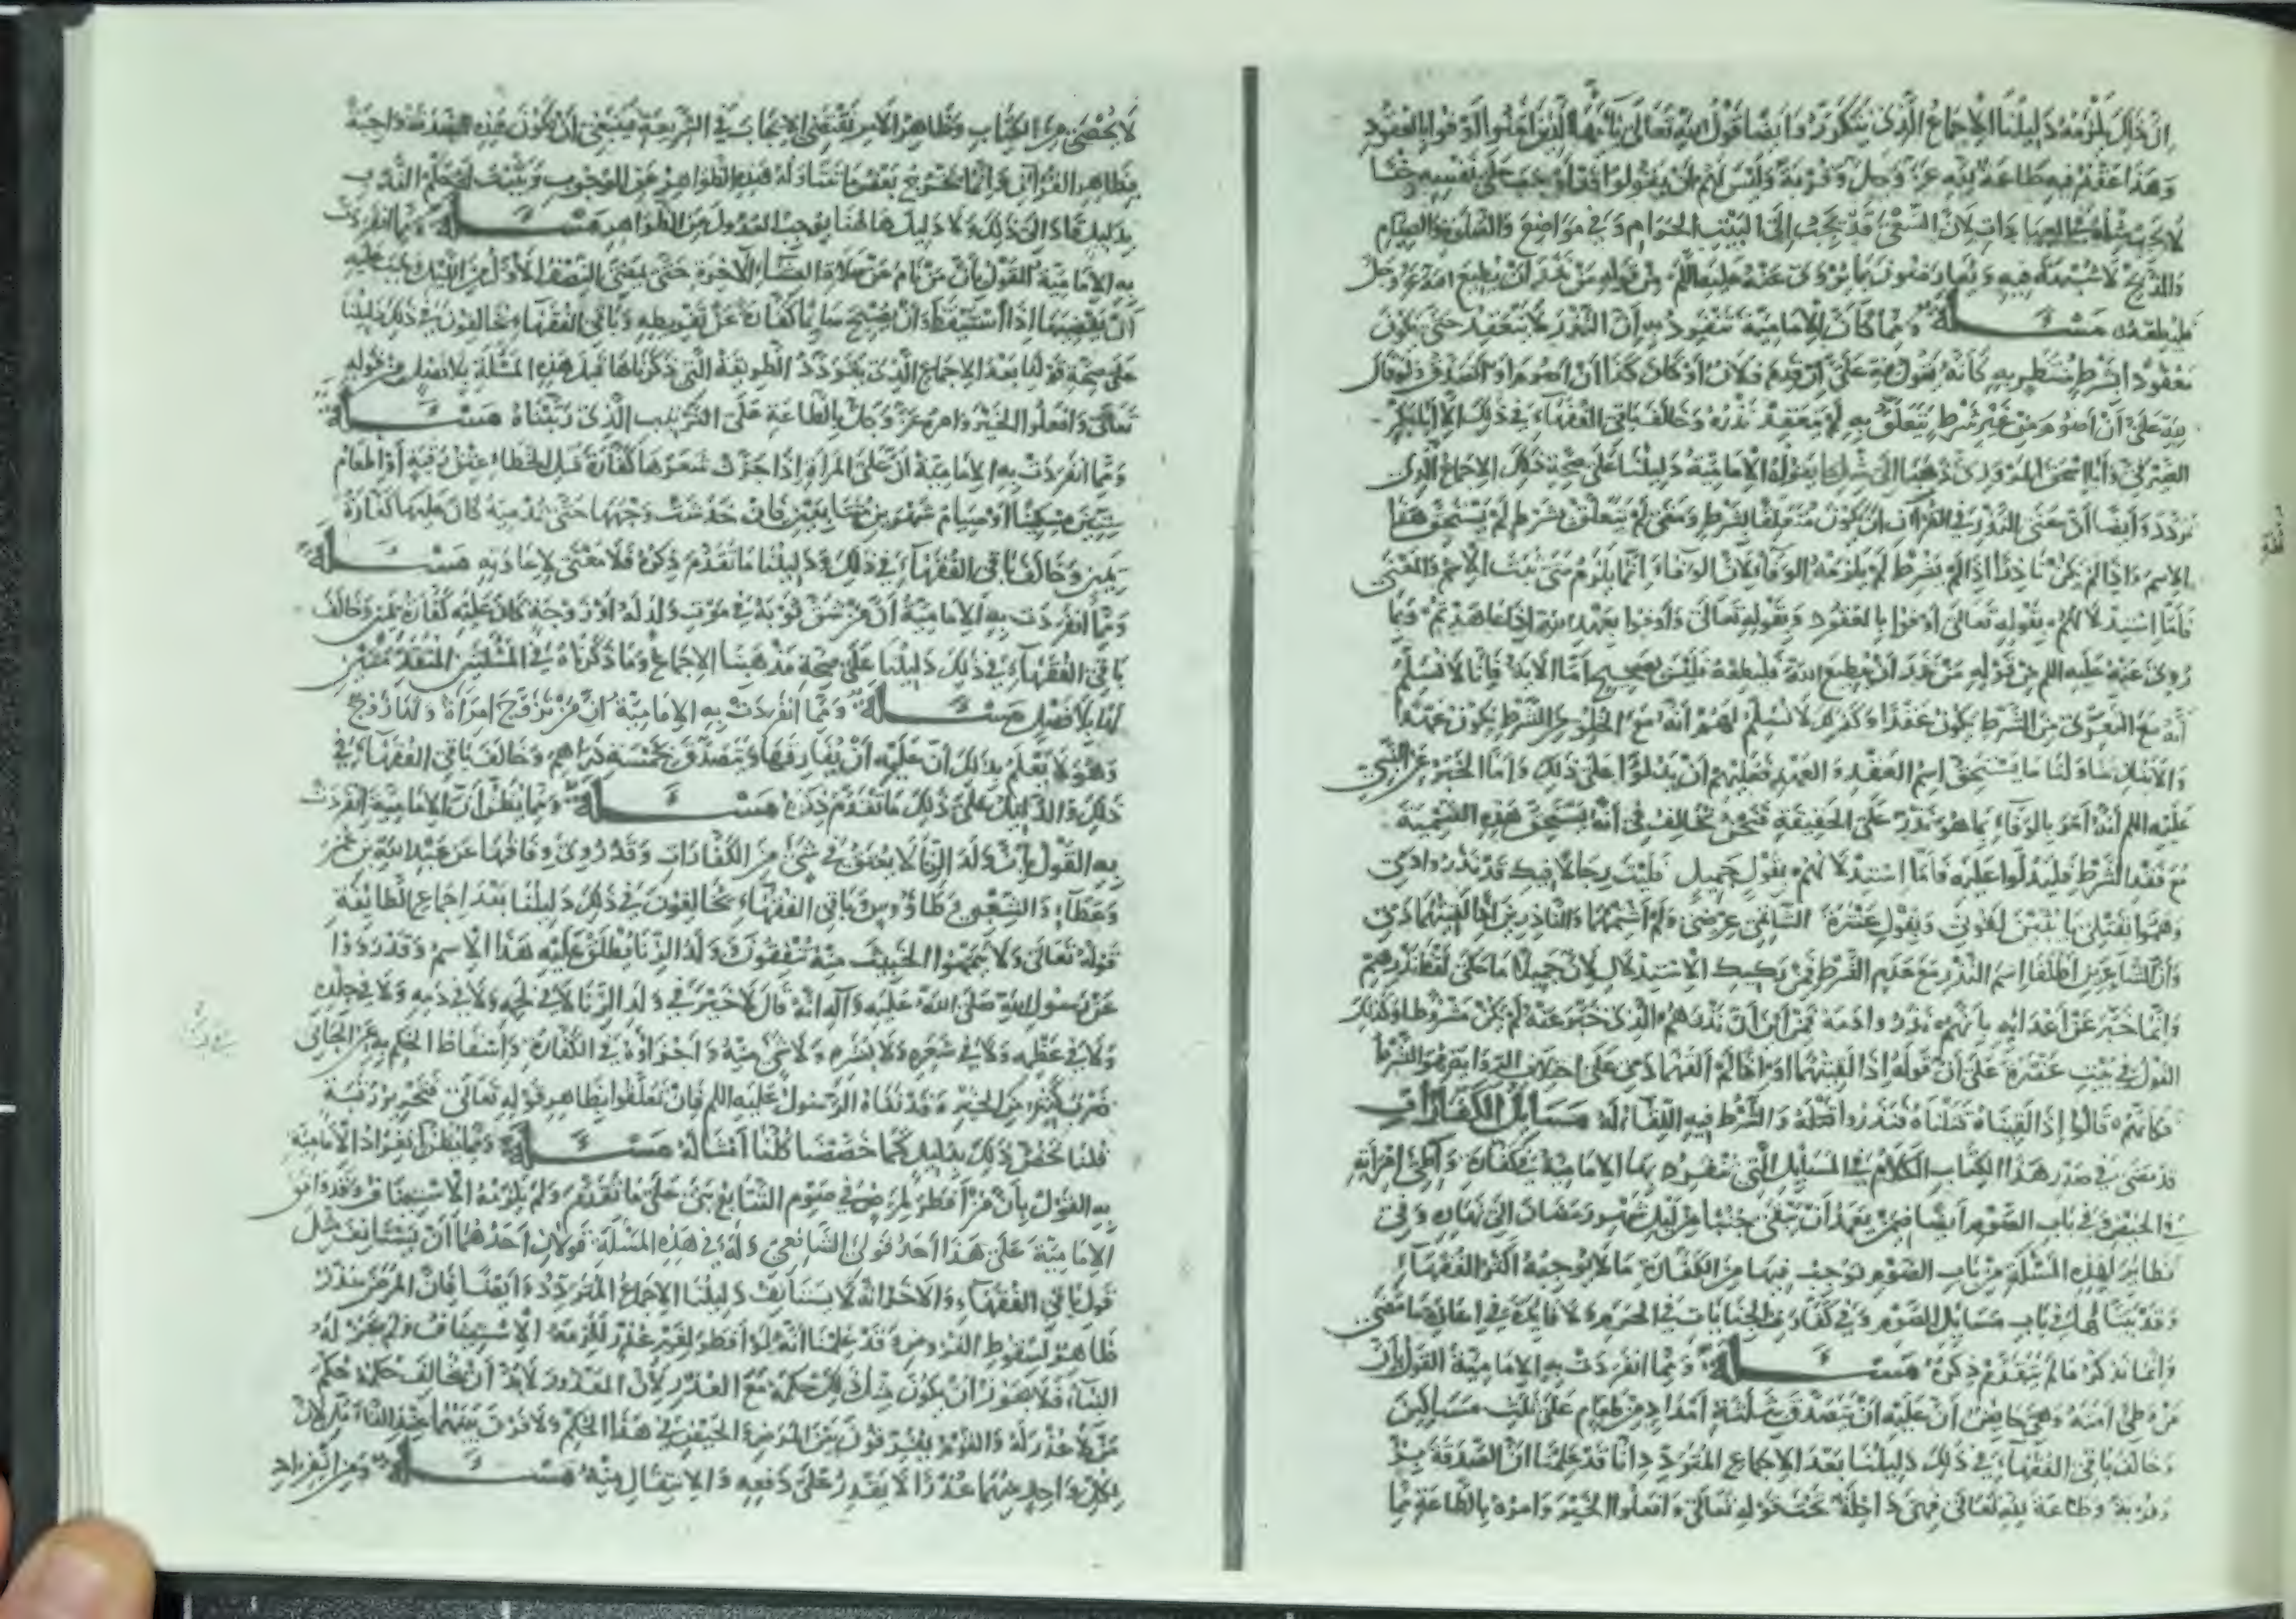 ان ذلك يلزمه دليلنا الإجماع الذي يتكرر وأيضا قول الله تعالى يا أيها الذين آمنوا أوفوا بالعقود
وهذا عقد فيه طاعة لله عز وجل وقربة وليس لهم أن يقولوا قد أوجب على نفسه
لا يجب مثله في العبادات لأن السعي قد يجب إلى البيت الحرام وفي مواضع والصلوة والصيام
والذبح لا شبهة فيه ويعارضون بما يروى عنه عليه السلم من قوله من نذر أن يطيع الله عز وجل
فليطعه مسئلة ومما كان الإمامية تنفرد به أن النذر لا ينعقد حتى يكون
معقودا بشرط متعلق به كأنه يقول لله علي إن قدم فلان أو كان كذا أن أصوم أو أتصدق ولو قال
لله علي أن أصوم من غير شرط يتعلق به لم ينعقد نذره وخالف باقي الفقهاء في ذلك إلا أبا بكر
الصيرفي وأبا إسحق المروزي ذهبا إلى مثل ما يقوله الإمامية دليلنا على صحة ذلك الإجماع الذي
تردد وأيضا أن معنى النذر في القرآن أن يكون متعلقا بشرط ومتى لم يتعلق بشرط لم يستحق هذا
الاسم وإذا لم يكن ناذرا إذا لم يشرط لم يلزمه الوفاء لأن الوفاء إنما يلزم متى ثبت الاسم والمعنى
فأما استدلالهم بقوله تعالى أوفوا بالعقود وبقوله تعالى وأوفوا بعهد الله إذا عاهدتم وبما
روي عنه عليه السلم من قوله من نذر أن يطيع الله فليطعه فليس بصحيح أما الآية فإنا لا نسلم
أنه مع التعري من الشرط يكون عقدا وكذلك لا نسلم لهم أنه مع الخلو من الشرط يكون عهدا
والآيتان تناولتا ما يستحق اسم العقد والعهد فعليهم أن يدلوا على ذلك وأما الخبر عن النبي
عليه السلم أنه أمر بالوفاء بما هو نذر على الحقيقة فنحن نخالف في أنه يستحق هذه التسمية
مع فقد الشرط فليدلوا عليه فأما استدلالهم بقول جميل فليت رجالا فيك قد نذروا دمي
وهموا بقتلي يا بثين لقوني وبقول عنترة الشاتمي عرضي ولم أشتمهما والناذرين إذا لقيتهما دمي
وأن الشاعرين أطلقا اسم النذر مع عدم الشرط فمن ركيك الاستدلال لأن جميلا ما حكى لفظ نذرهم
وإنما خبر عن أعدائه بأنهم نذروا دمه فمن أين أن نذرهم الذي خبر عنه لم يكن مشروطا وكذلك
القول في بيت عنترة على أن قوله إذا لقيتهما أو إذا لم ألقهما دمي على اختلاف
فكأنهم قالوا إذا لقيناه قتلناه فنذروا قتله والشرط فيه اللقاء له مسائل الكفارات
قد مضى في صدر هذا الكتاب الكلام في المسائل التي تنفرد بها الإمامية في كفارة وطئ امرأته
في الحيض وفي باب الصوم أيضا فيمن يعمد أن يبقى جنبا من ليل شهر رمضان إلى نهاره وفي
نظائر لهذه المسئلة من باب الصوم نوجب فيها من الكفارة ما لا يوجبه أكثر الفقهاء
وقد بينا في باب مسائل الصوم وفي كفارة الجنايات في الحرم ولا فائدة في إعادة ما مضى
وإنما نذكر ما لم يتقدم ذكره مسئلة ومما انفردت به الإمامية القول بأن
من وطئ أمته وهي حائض أن عليه أن يتصدق بثلثة أمداد من طعام على ثلث مساكين
وخالف باقي الفقهاء في ذلك دليلنا بعد الإجماع المتردد إنا قد علمنا أن الصدقة بر
وقربة وطاعة لله تعالى فهي داخلة تحت قوله تعالى وافعلوا الخير وأمره بالطاعة مما
لا يحصى من الكتاب وظاهر الأمر يقتضي الإيجاب في الشريعة فينبغي أن تكون هذه الصدقة واجبة
بظاهر القرآن وإنما يخرج بعض ما تناوله هذه الظواهر عن الوجوب ويثبت له حكم الندب
بدليل قاد إلى ذلك ولا دليل هاهنا يوجب العدول عن الظواهر مسئلة ومما انفردت
به الإمامية القول بأن من نام عن صلاة العشاء الآخرة حتى يمضي النصف الأول من الليل وجب عليه
أن يقضيها إذا استيقظ وأن يصبح صائما كفارة عن تفريطه وباقي الفقهاء يخالفون في ذلك دليلنا
على صحة قولنا بعد الإجماع الذي يتردد الطريقة التي ذكرناها قبل هذه المسئلة بلا فصل من قوله
تعالى وافعلوا الخير وأمره عز وجل بالطاعة على الترتيب الذي رتبناه مسئلة
ومما انفردت به الإمامية أن على المرأة إذا جزت شعرها كفارة قتل الخطاء عتق رقبة أو إطعام
ستين مسكينا أو صيام شهرين متتابعين فإن خدشت وجهها حتى تدميه كان عليها كفارة
يمين وخالف باقي الفقهاء في ذلك ودليلنا ما تقدم ذكره فلا معنى لإعادته مسئلة
ومما انفردت به الإمامية أن من شق ثوبه في موت ولد له أو زوجة كان عليه كفارة يمين وخالف
باقي الفقهاء في ذلك دليلنا على صحة مذهبنا الإجماع وما ذكرناه في المسئلتين المتقدمتين
لها بلا فصل مسئلة ومما انفردت به الإمامية أن من تزوج امرأة ولها زوج
وهو لا يعلم بذلك أن عليه أن يفارقها ويتصدق بخمسة دراهم وخالف باقي الفقهاء في
ذلك والدليل على ذلك ما تقدم ذكره مسئلة ومما يظن أن الإمامية انفردت
به القول بأن ولد الزنا لا يعتق في شئ من الكفارات وقد روي وفاقها عن عبد الله بن عمر
وعطاء والشعبي وطاؤوس وباقي الفقهاء يخالفون في ذلك دليلنا بعد إجماع الطائفة
قوله تعالى ولا تيمموا الخبيث منه تنفقون وولد الزنا يطلق عليه هذا الاسم وقد رووا
عن رسول الله صلى الله عليه وآله أنه قال لا خير في ولد الزنا لا في لحمه ولا في دمه ولا في جلده
ولا في عظمه ولا في شعره ولا بشره ولا شئ منه وإجزاؤه في الكفارة وإسقاط الحكم به عن الجاني
ضرب كثير من الخير وقد نفاه الرسول عليه السلم فإن تعلقوا بظاهر قوله تعالى فتحرير رقبة
قلنا نخص ذلك بدليل كما خصصنا كلنا أمثاله مسئلة ومما يظن انفراد الإمامية
به القول بأن من أفطر لمرض في صوم التتابع بنى على ما تقدم ولم يلزمه الاستيناف وقد وافق
الإمامية على هذا أحد قولي الشافعي وله في هذه المسئلة قولان أحدهما أن يستأنف مثل
قول باقي الفقهاء والآخر أنه لا يستأنف دليلنا الإجماع المتردد وأيضا فإن المرض عذر
ظاهر لسقوط الفروض وقد علمنا أنه لو أفطر لغير عذر للزمه الاستيناف ولم يجز له
البناء فلا يجوز أن يكون كذلك حكمه مع العذر لأن المعذور لا بد أن يخالف حكمه حكم
من لا عذر له والقوم يفرقون بين المرض والحيض في هذا الحكم ولا فرق بينهما عند التأمل لأن
كل واحد منهما عذرا لا يقدر على دفعه والانتقال منه مسئلة ومن انفراد